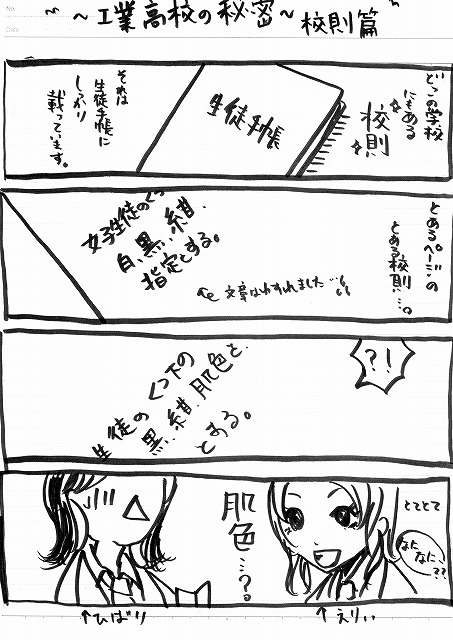 No.
Date
～工業高校の秘密～ 校則篇
どこの学校
にもある
校則
生徒手帳
それは
生徒手帳に
しっかり
載っています。
とあるページの
とある校則…。
女子生徒のくつ
白、黒、紺、
指定とする。
文章はわすれました…
?!
生徒のくつ下の
黒、紺、肌色を、
とする。
とてとて
なに
なに、
??
肌色…?。
↑えりぃ
↑ひばり